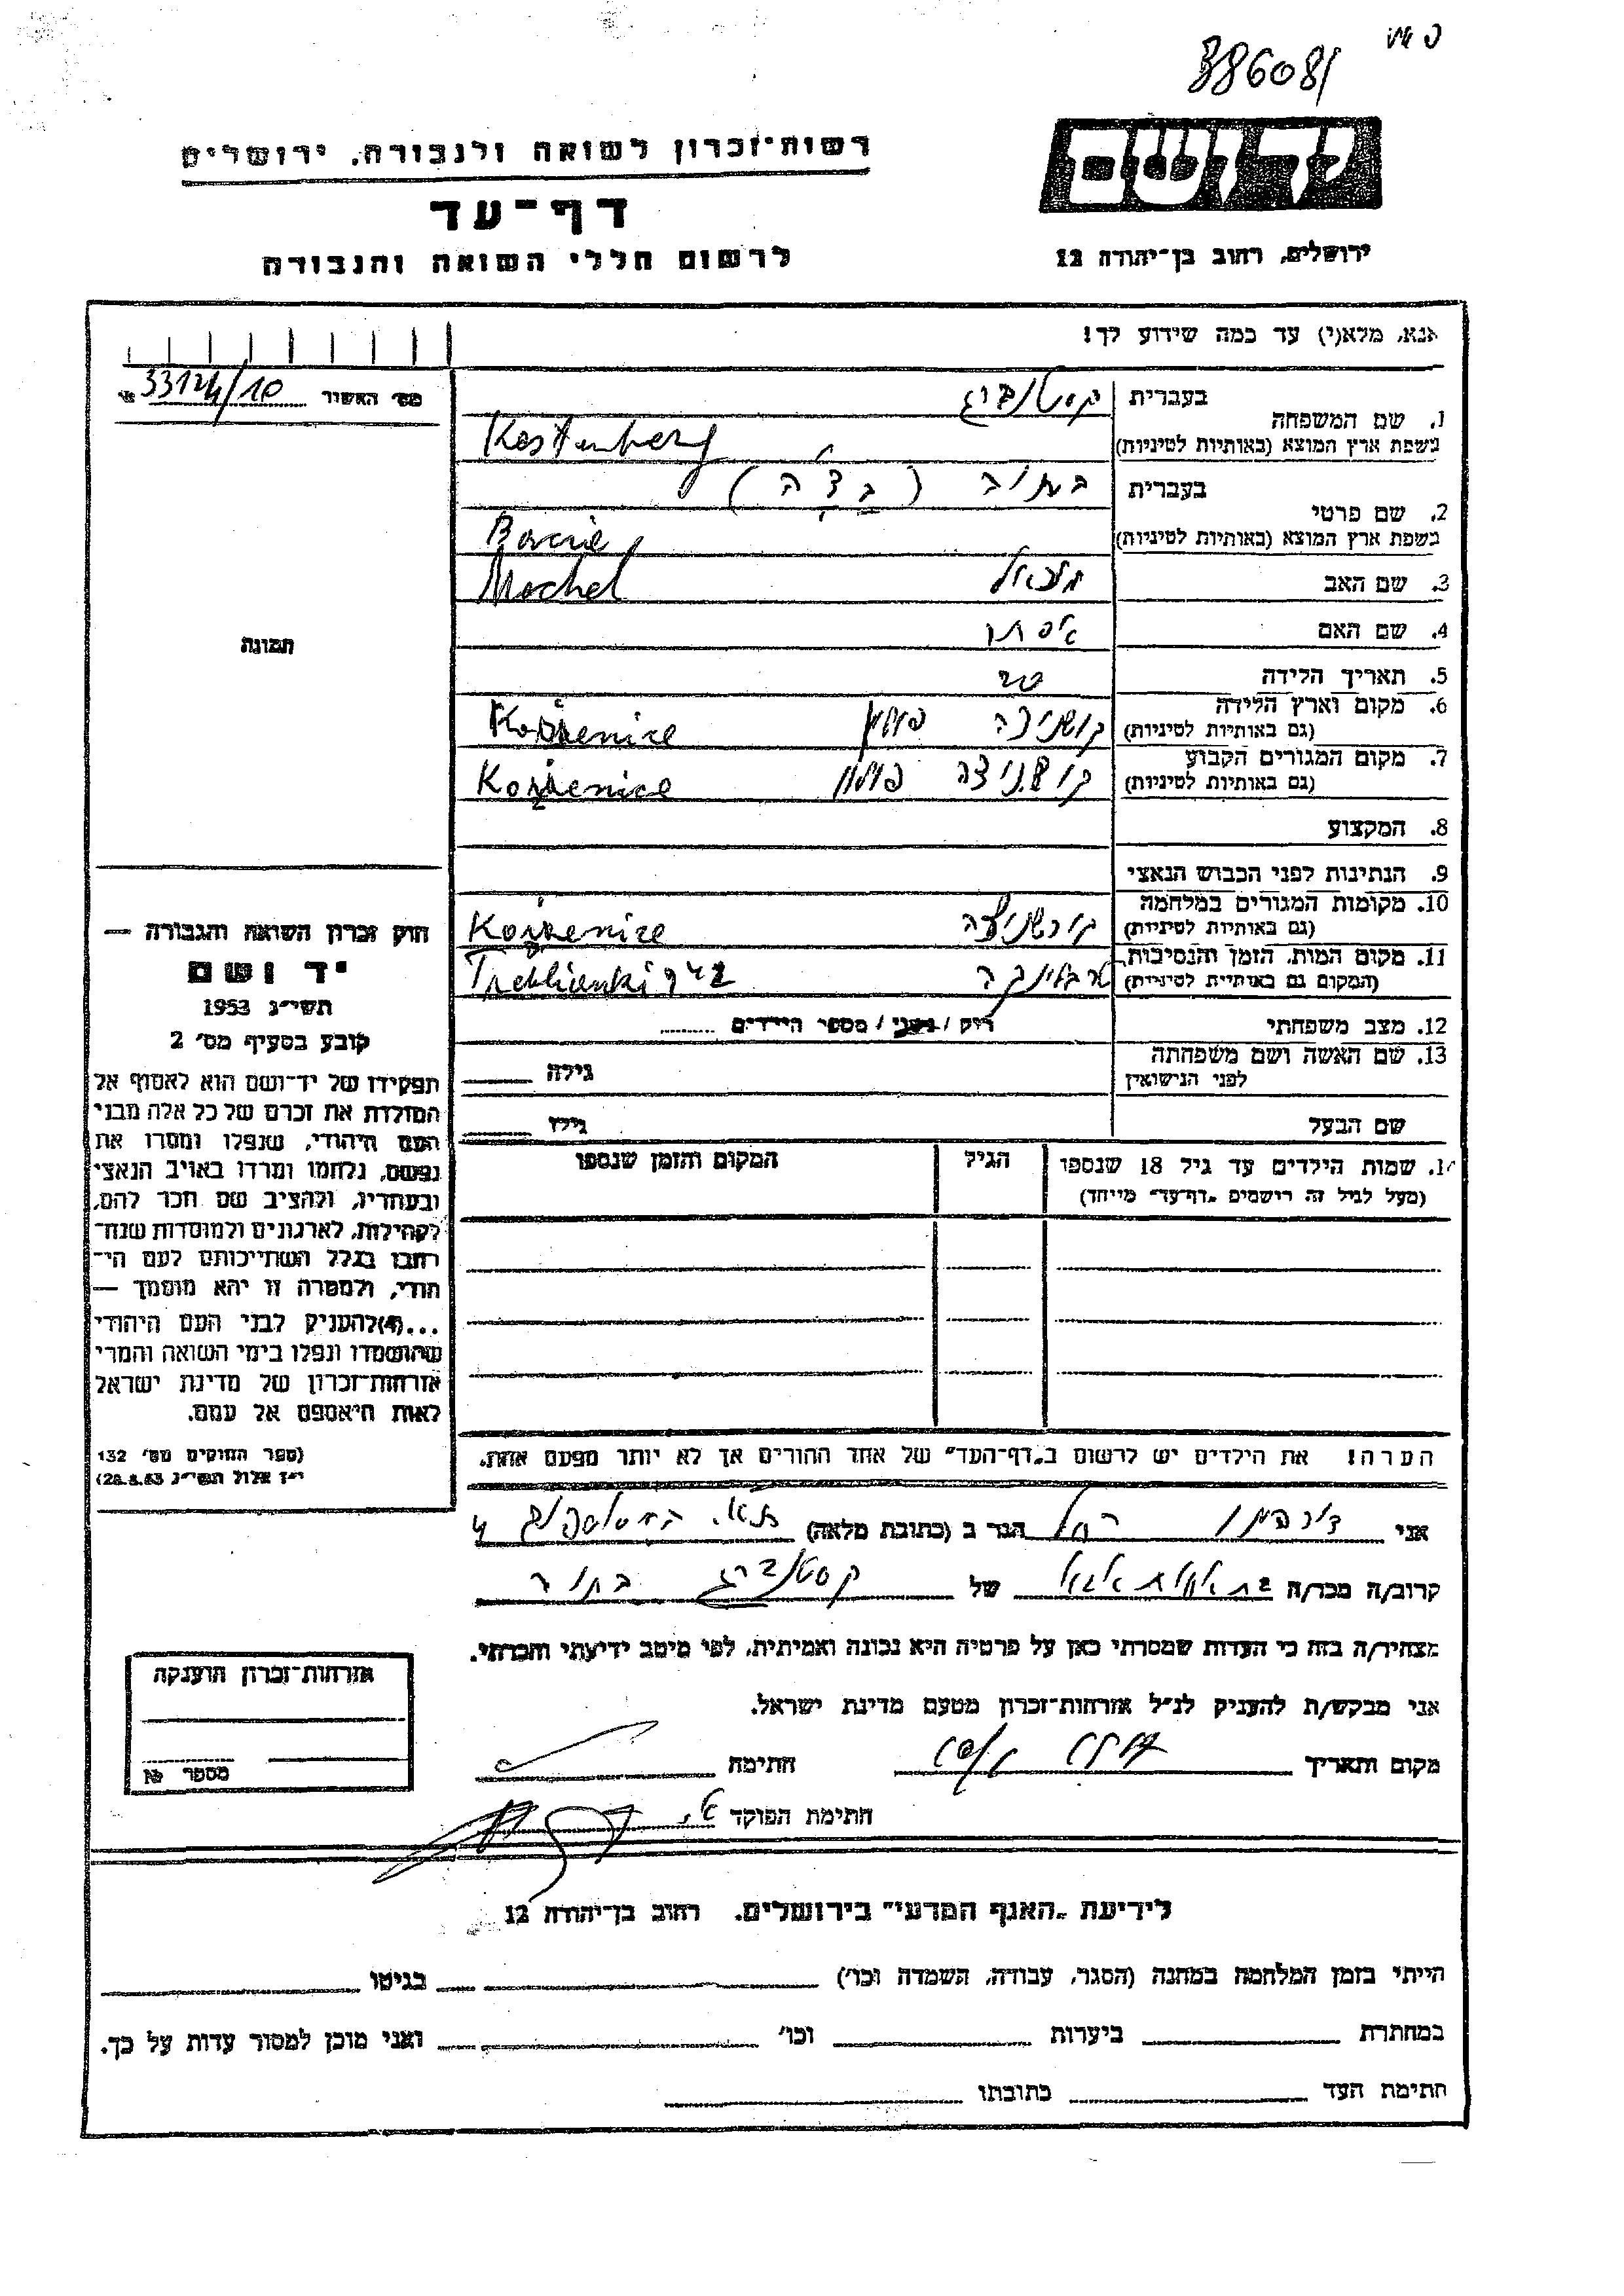 386081
רשות־זכרון לשואה ולגבורה, ירושלים
יד ושם
דף־עד
לרשום חללי השואה והגבורה
ירושלים, רחוב בן־יהודה 12
אנא, מלא(י) עד כמה שידוע לך!
מס׳ האשור 33124/10 №
1. שם המשפחה
בעברית קסטנברג
בשפת ארץ המוצא (באותיות לטיניות) Kestenberg
2. שם פרטי
בעברית
בשפת ארץ המוצא (באותיות לטיניות)
3. שם האב Mechel
4. שם האם
5. תאריך הלידה
6. מקום וארץ הלידה
(גם באותיות לטיניות) פולין Kozienice
7. מקום המגורים הקבוע
(גם באותיות לטיניות) פולין Kozienice
8. המקצוע
9. הנתינות לפני הכבוש הנאצי
10. מקומות המגורים במלחמה
(גם באותיות לטיניות) Kozienice
11. מקום המות, הזמן והנסיבות
(המקום גם באותיות לטיניות) טרבלינקה
12. מצב משפחתי רוק / נשוי / מספר הילדים
13. שם האשה ושם משפחתה
לפני הנישואין גילה
שם הבעל גילו
14. שמות הילדים עד גיל 18 שנספו
(מעל לגיל זה רושמים „דף־עד״ מייחד)
הגיל
המקום והזמן שנספו
תמונה
חוק זכרון השואה והגבורה —
יד ושם
תשי״ג 1953
קובע בסעיף מס׳ 2
תפקידו של יד־ושם הוא לאסוף אל
המולדת את זכרם של כל אלה מבני
העם היהודי, שנפלו ומסרו את
נפשם, נלחמו ומרדו באויב הנאצי
ובעוזריו, ולהציב שם וזכר להם,
לקהילות, לארגונים ולמוסדות שנח־
רבו בגלל השתייכותם לעם הי־
הודי, ולמטרה זו יהא מוסמך —
...(4)להעניק לבני העם היהודי
שהושמדו ונפלו בימי השואה והמרי
אזרחות־זכרון של מדינת ישראל
לאות היאספם אל עמם.
(ספר החוקים מס׳ 132
י״ז אלול תשי״ג 28.8.53)
הערה! את הילדים יש לרשום ב„דף־העד״ של אחד ההורים אך לא יותר מפעם אחת.
אני רחל הגר ב (כתובת מלאה)
קרוב/ה מכר/ה של קסטנברג
מצהיר/ה בזה כי העדות שמסרתי כאן על פרטיה היא נכונה ואמיתית, לפי מיטב ידיעתי והכרתי.
אני מבקש/ת להעניק לנ״ל אזרחות־זכרון מטעם מדינת ישראל.
מקום ותאריך חתימה
חתימת הפוקד
אזרחות־זכרון הוענקה
מספר №
לידיעת „האגף המדעי״ בירושלים. רחוב בן־יהודה 12
הייתי בזמן המלחמה במחנה (הסגר, עבודה, השמדה וכו׳) בגיטו
במחתרת ביערות וכו׳ ואני מוכן למסור עדות על כך.
חתימת העד כתובתו